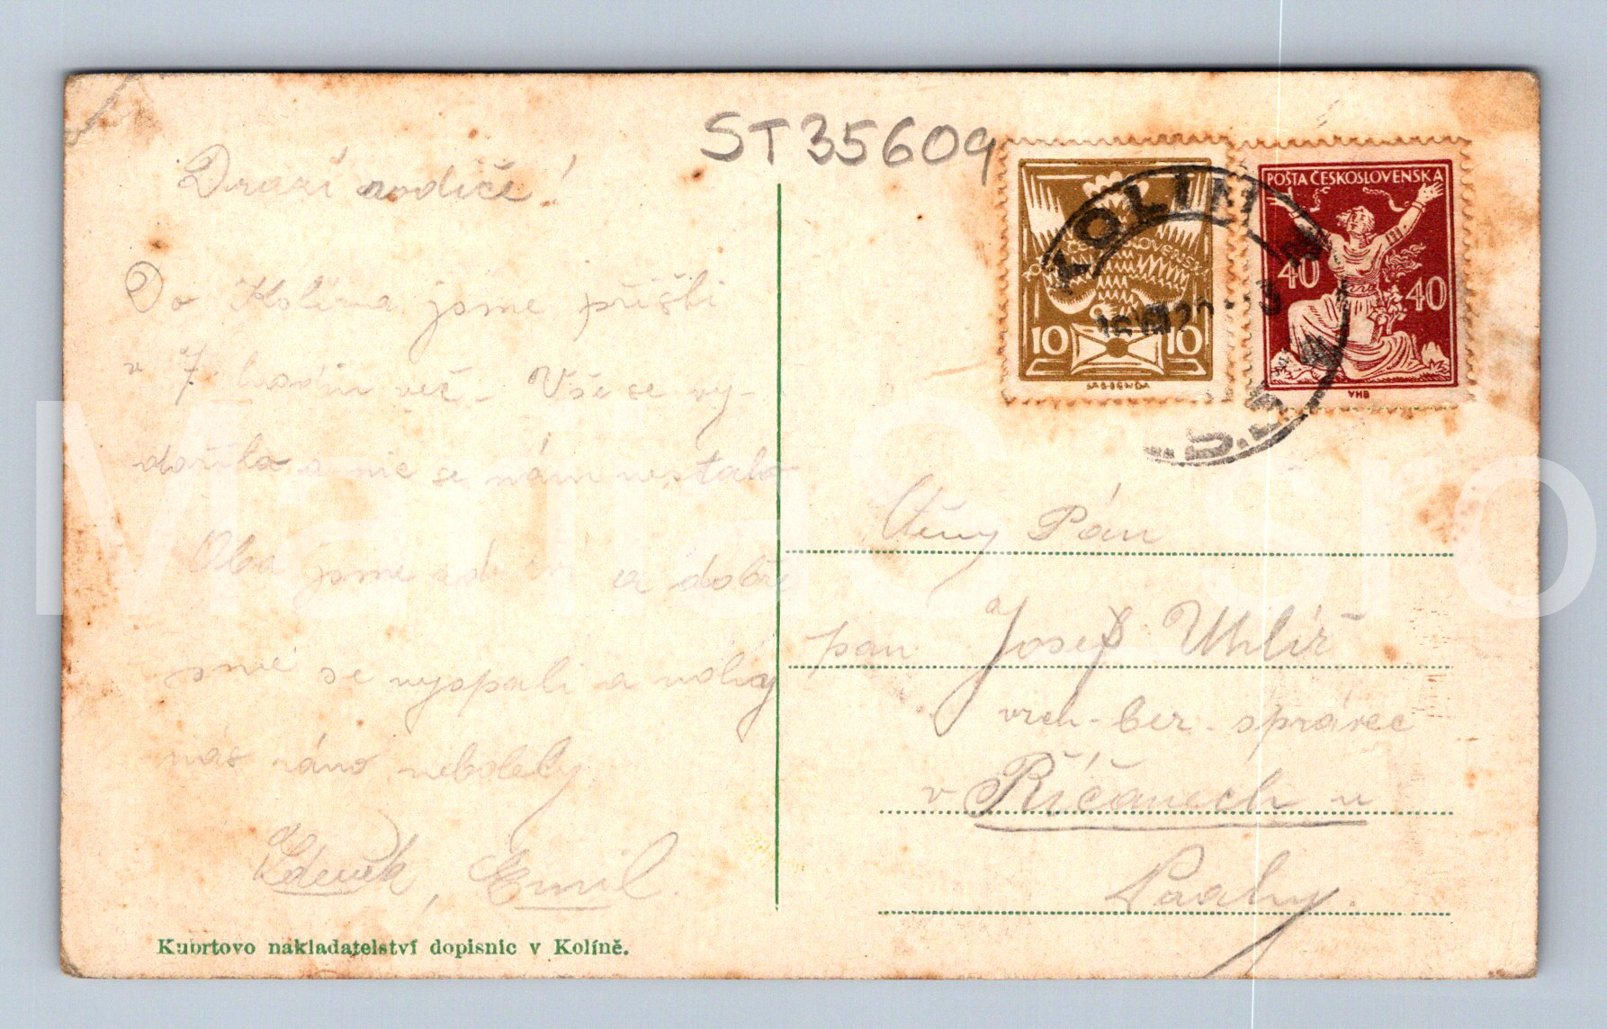 ST35609
Drazí rodiče!
Do Kolína jsme přišli
v 7. hodin več. Vše se vy-
dařilo a nic se nám nestalo
Oba jsme zdrávi a dobře
sme se vyspali a nohy
nás ráno neboleli
Zdeněk, Emil.
Kubrtovo nakladatelství dopisnic v Kolíně.
POŠTA ČESKOSLOVENSKÁ
10 10
40 40
VHB
KOLÍN
Č.S.P.
Ctěný Pán
pan Josef Uhlíř
vrch. ber. správce
v Říčanech u
Prahy.
MariaC sro